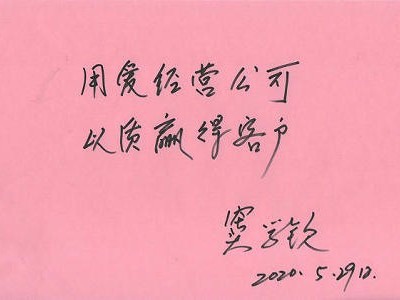 用爱经营公司
以质赢得客户
窦学钦
2020.5.29日.